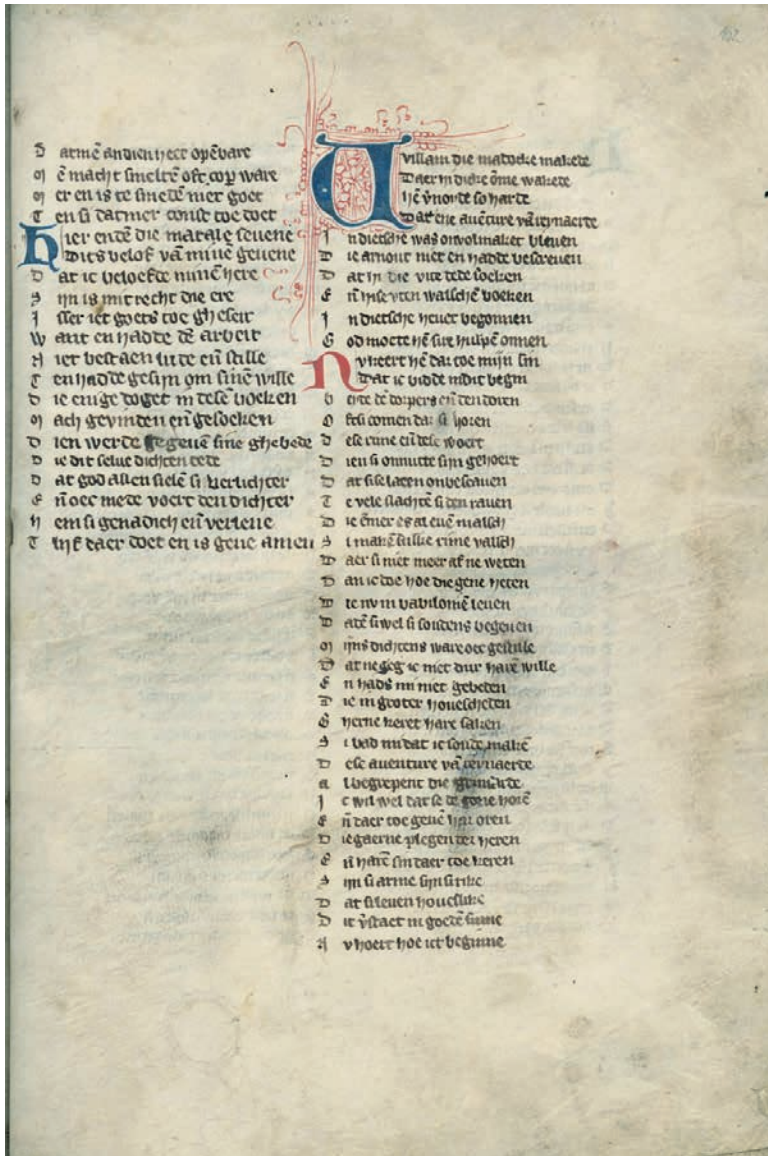 192
D atmē andien heet opēbare
M ē macht smeltē oft cop ware
M er en is te smedē niet goet
T en si datmer const toe doet
Hier endē die matale seuene
Dits belof vā mine geuene
D at ic beloefde minē here
S ijn is mit recht die ere
I sser iet goets toe gheseit
W ant en hadde dē arbeit
N iet bestaen lude eñ stille
T en hadde gesijn om sinē wille
D ie enige doget in desē boeken
M ach gevinden eñ gesoeken
D ien werde gegeuē sine ghebede
D ie dit selue dichten dede
D at god allen sielē si verlichter
E ñ oec mede voert den dichter
H em si genadich eñ verlene
T lijf daer doet en is gene amen
Willam die madocke makede
Daer in dicke ōme wakede
hē v̄norde so harde
Dat ene auēture vā reynaerde
I n dietsche was onvolmaket bleuen
D ie arnout niet en hadde bescreuen
D at hi die vite dede soeken
E ñ hise vten walschē boeken
I n dietsche heuet begonnen
G od moete hē sire hulpē onnen
Nv keert hē dar toe mijn sin
Dat ic bidde in dit begin
B eide dē dorpers eñ den doren
O fte si comen dar si horen
D ese rime eñ dese woert
D ien si onnutte sijn gehoert
D at sise laten onbescauen
T e vele slachtē si den rauen
D ie ēmer es al euē malsch
S i makē sulke rime valsch
D aer si niet meer af ne weten
D an ic doe hoe die gene heten
D ie nv in babilonië leuen
D adē si wel si soudens begeuen
M ijns dichtens ware oec gestille
D at ne seg ic niet dur harē wille
E n hads mi niet gebeden
D ie in groter houescheden
G herne keret hare saken
S i bad mi dat ic soude makē
D ese auenture vā reynaerde
A l begrepent die
I c wil wel dat se de gone horē
E ñ daer toe geuē har oren
D ie gaerne plegen der heren
E ñ harē sin daer toe keren
S ijn si arme sijn si rike
D at si leuen houeslike
D it v̄staet in goedē sinne
N v hoert hoe ict beginne